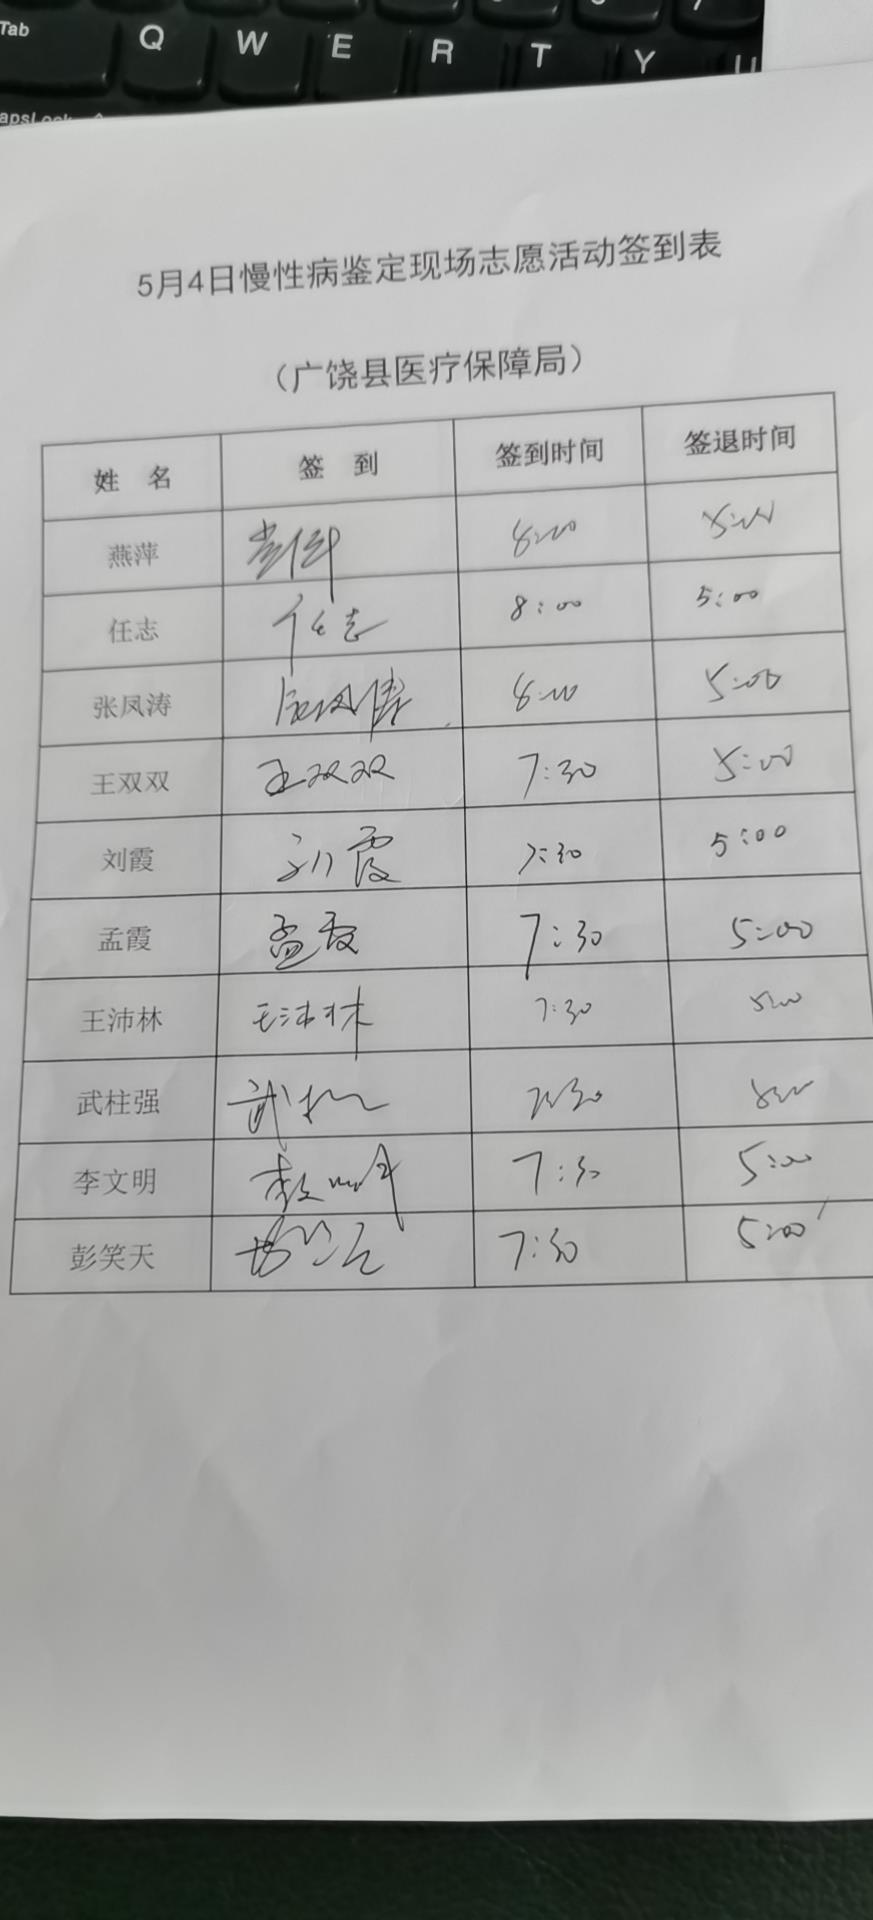 Tab
Q W E R T Y U
apsLock
5月4日慢性病鉴定现场志愿活动签到表
（广饶县医疗保障局）
姓 名 签 到 签到时间 签退时间
燕萍 8:00 5:00
任志 任志 8:00 5:00
张凤涛 张凤涛 8:00 5:00
王双双 王双双 7:30 5:00
刘霞 刘霞 7:30 5:00
孟霞 孟霞 7:30 5:00
王沛林 王沛林 7:30 5:00
武柱强 7:30 5:00
李文明 7:30 5:00
彭笑天 7:30 5:00